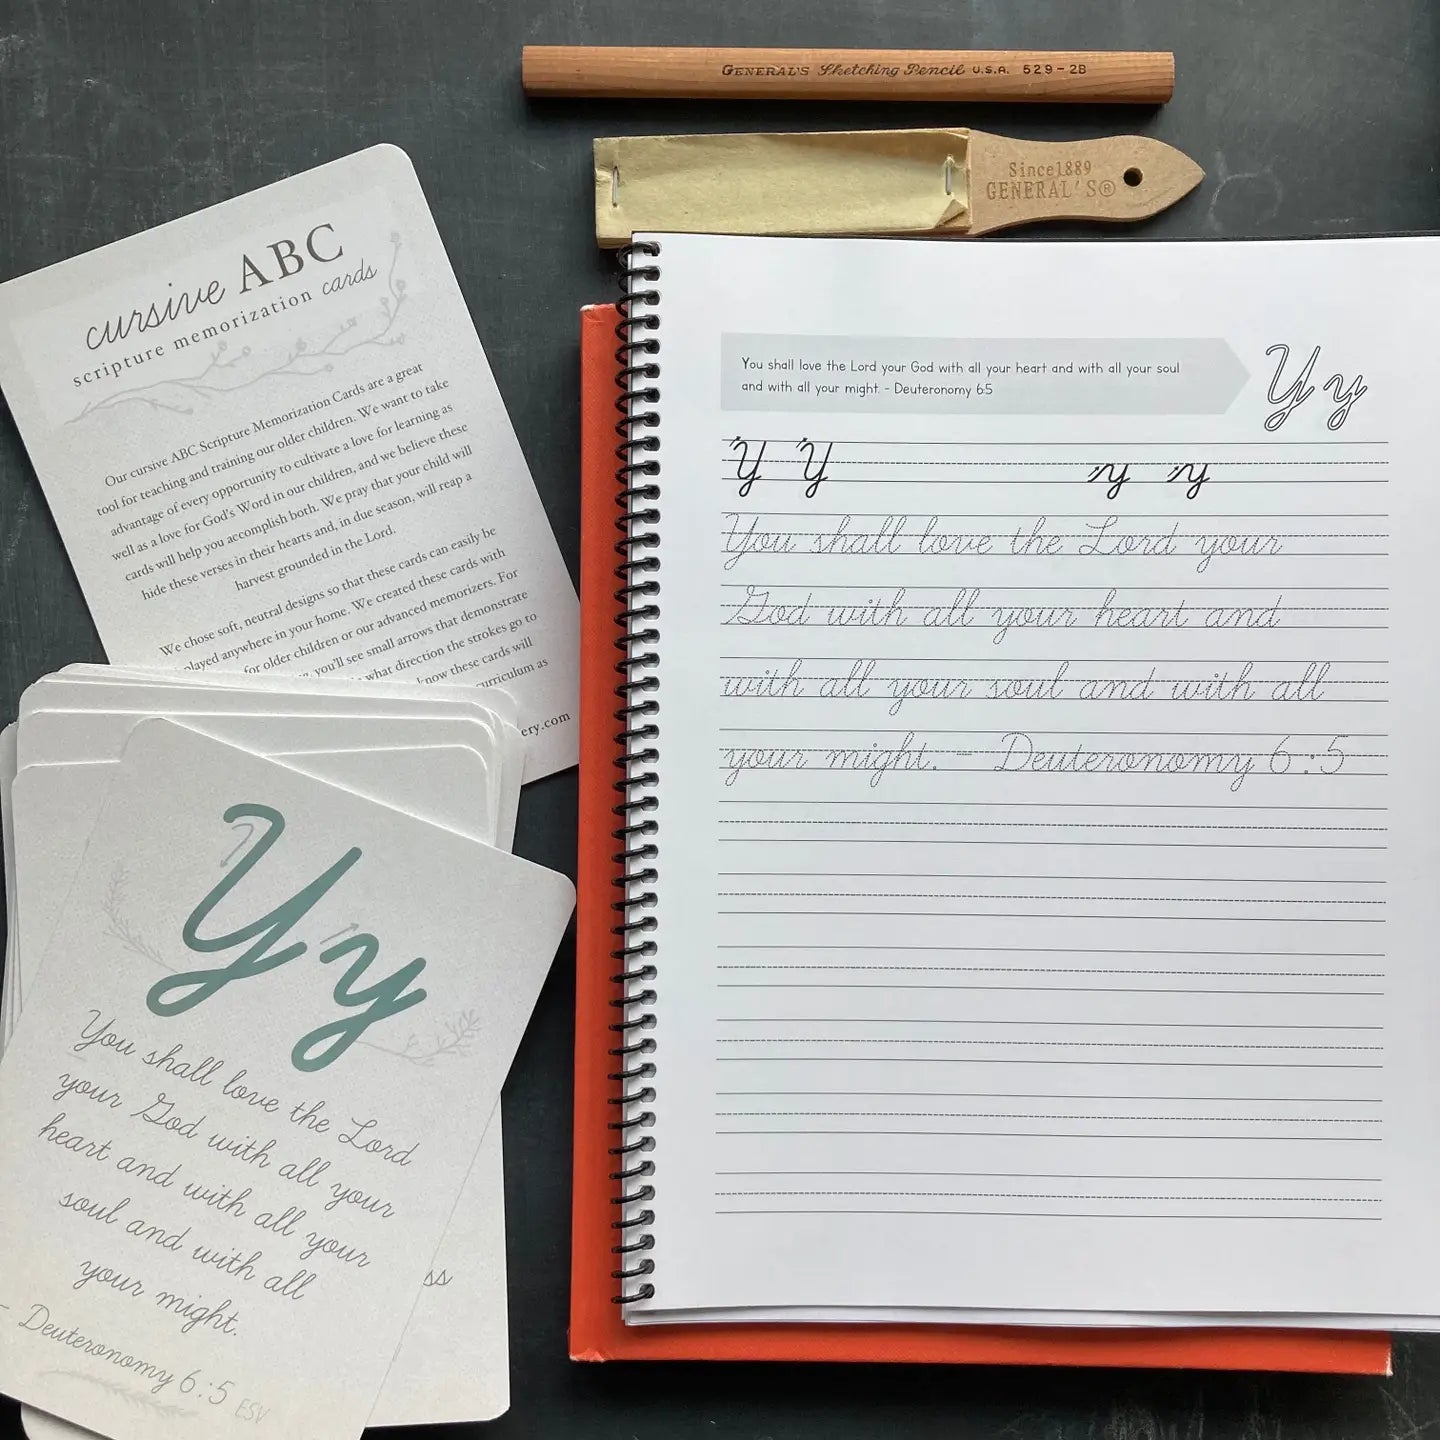 GENERAL'S Sketching Pencil U.S.A. 529-2B
Since1889
GENERAL'S®
cursive ABC
scripture memorization cards
Our cursive ABC Scripture Memorization Cards are a great
tool for teaching and training our older children. We want to take
advantage of every opportunity to cultivate a love for learning as
well as a love for God's Word in our children, and we believe these
cards will help you accomplish both. We pray that your child will
hide these verses in their hearts and, in due season, will reap a
harvest grounded in the Lord.
We chose soft, neutral designs so that these cards can easily be
played anywhere in your home. We created these cards with
for older children or our advanced memorizers. For
you'll see small arrows that demonstrate
what direction the strokes go to
know these cards will
curriculum as
ery.com
Yy
You shall love the Lord
your God with all your
heart and with all your
soul and with all
your might.
- Deuteronomy 6:5 ESV
You shall love the Lord your God with all your heart and with all your soul
and with all your might. - Deuteronomy 6:5
Y y
Y Y y y
You shall love the Lord your
God with all your heart and
with all your soul and with all
your might. - Deuteronomy 6:5